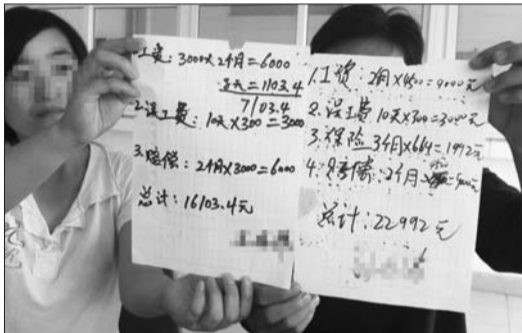 1.工资: 3000×2个月=6000
天=1103.4
7103.4
2.误工费: 10天×300=3000
3.赔偿: 2个月×3000=6000
总计: 16103.4元
1.工资: 2月×4500=9000元
2.误工费 10天×300=3000元
3.保险 3个月×664=1992元
4.赔偿: 2个月×
总计: 22992元